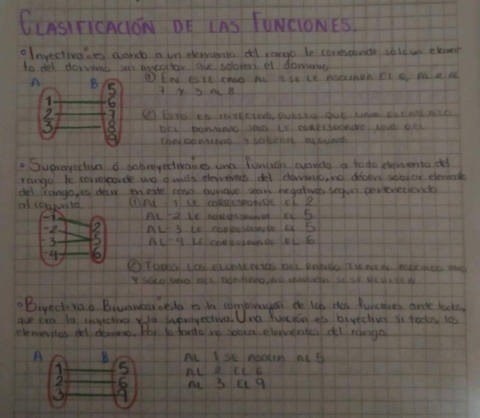 CLASIFICACIÓN DE LAS FUNCIONES.
° Inyectiva es cuando a un elemento del rango le corresponde sólo un elemen
to del dominio sin importar que sobren el dominio
A B
1 2 3
5 6 7 8 9
① EN ESTE CASO AL 1 SE LE ASOCIARA EL 6, AL 2 AL
7 Y 3 AL 8
② ESTO ES INYECTIVO, PUESTO QUE UNO ELEMENTO
DEL DOMINIO SOLO LE CORRESPONDE UNO DEL
CONDOMINIO Y SOBREN ALGUNO
° Suproyectiva ó sobreyectiva es una función cuando a todo elemento del
rango le corresponde uno o más elementos del dominio, no deben sobrar elemento
del rango, es decir en este caso aunque sean negativos según perteneciendo
al conjunto.
-1 -2 -3 -4
2 5 6
① AL -1 LE CORRESPONDE EL 2
AL -2 LE CORRESPONDE EL 5
AL -3 LE CORRESPONDE EL 5
AL -4 LE CORRESPONDE EL 6
② TODOS LOS ELEMENTOS DEL RANGO TIENEN ASOCIADO UNO
Y SOLO UNO DEL DOMINIO, NO
° Biyectiva o Biunívoca esta es la combinación de las dos funciones ante todas,
que era la inyectiva y la suproyectiva. Una función es biyectiva si todos los
elementos del dominio. Por lo tanto no sobran elementos del rango.
A B
1 2 3
5 6 9
AL 1 SE ASOCIA AL 5
AL 2 EL 6
AL 3 EL 9